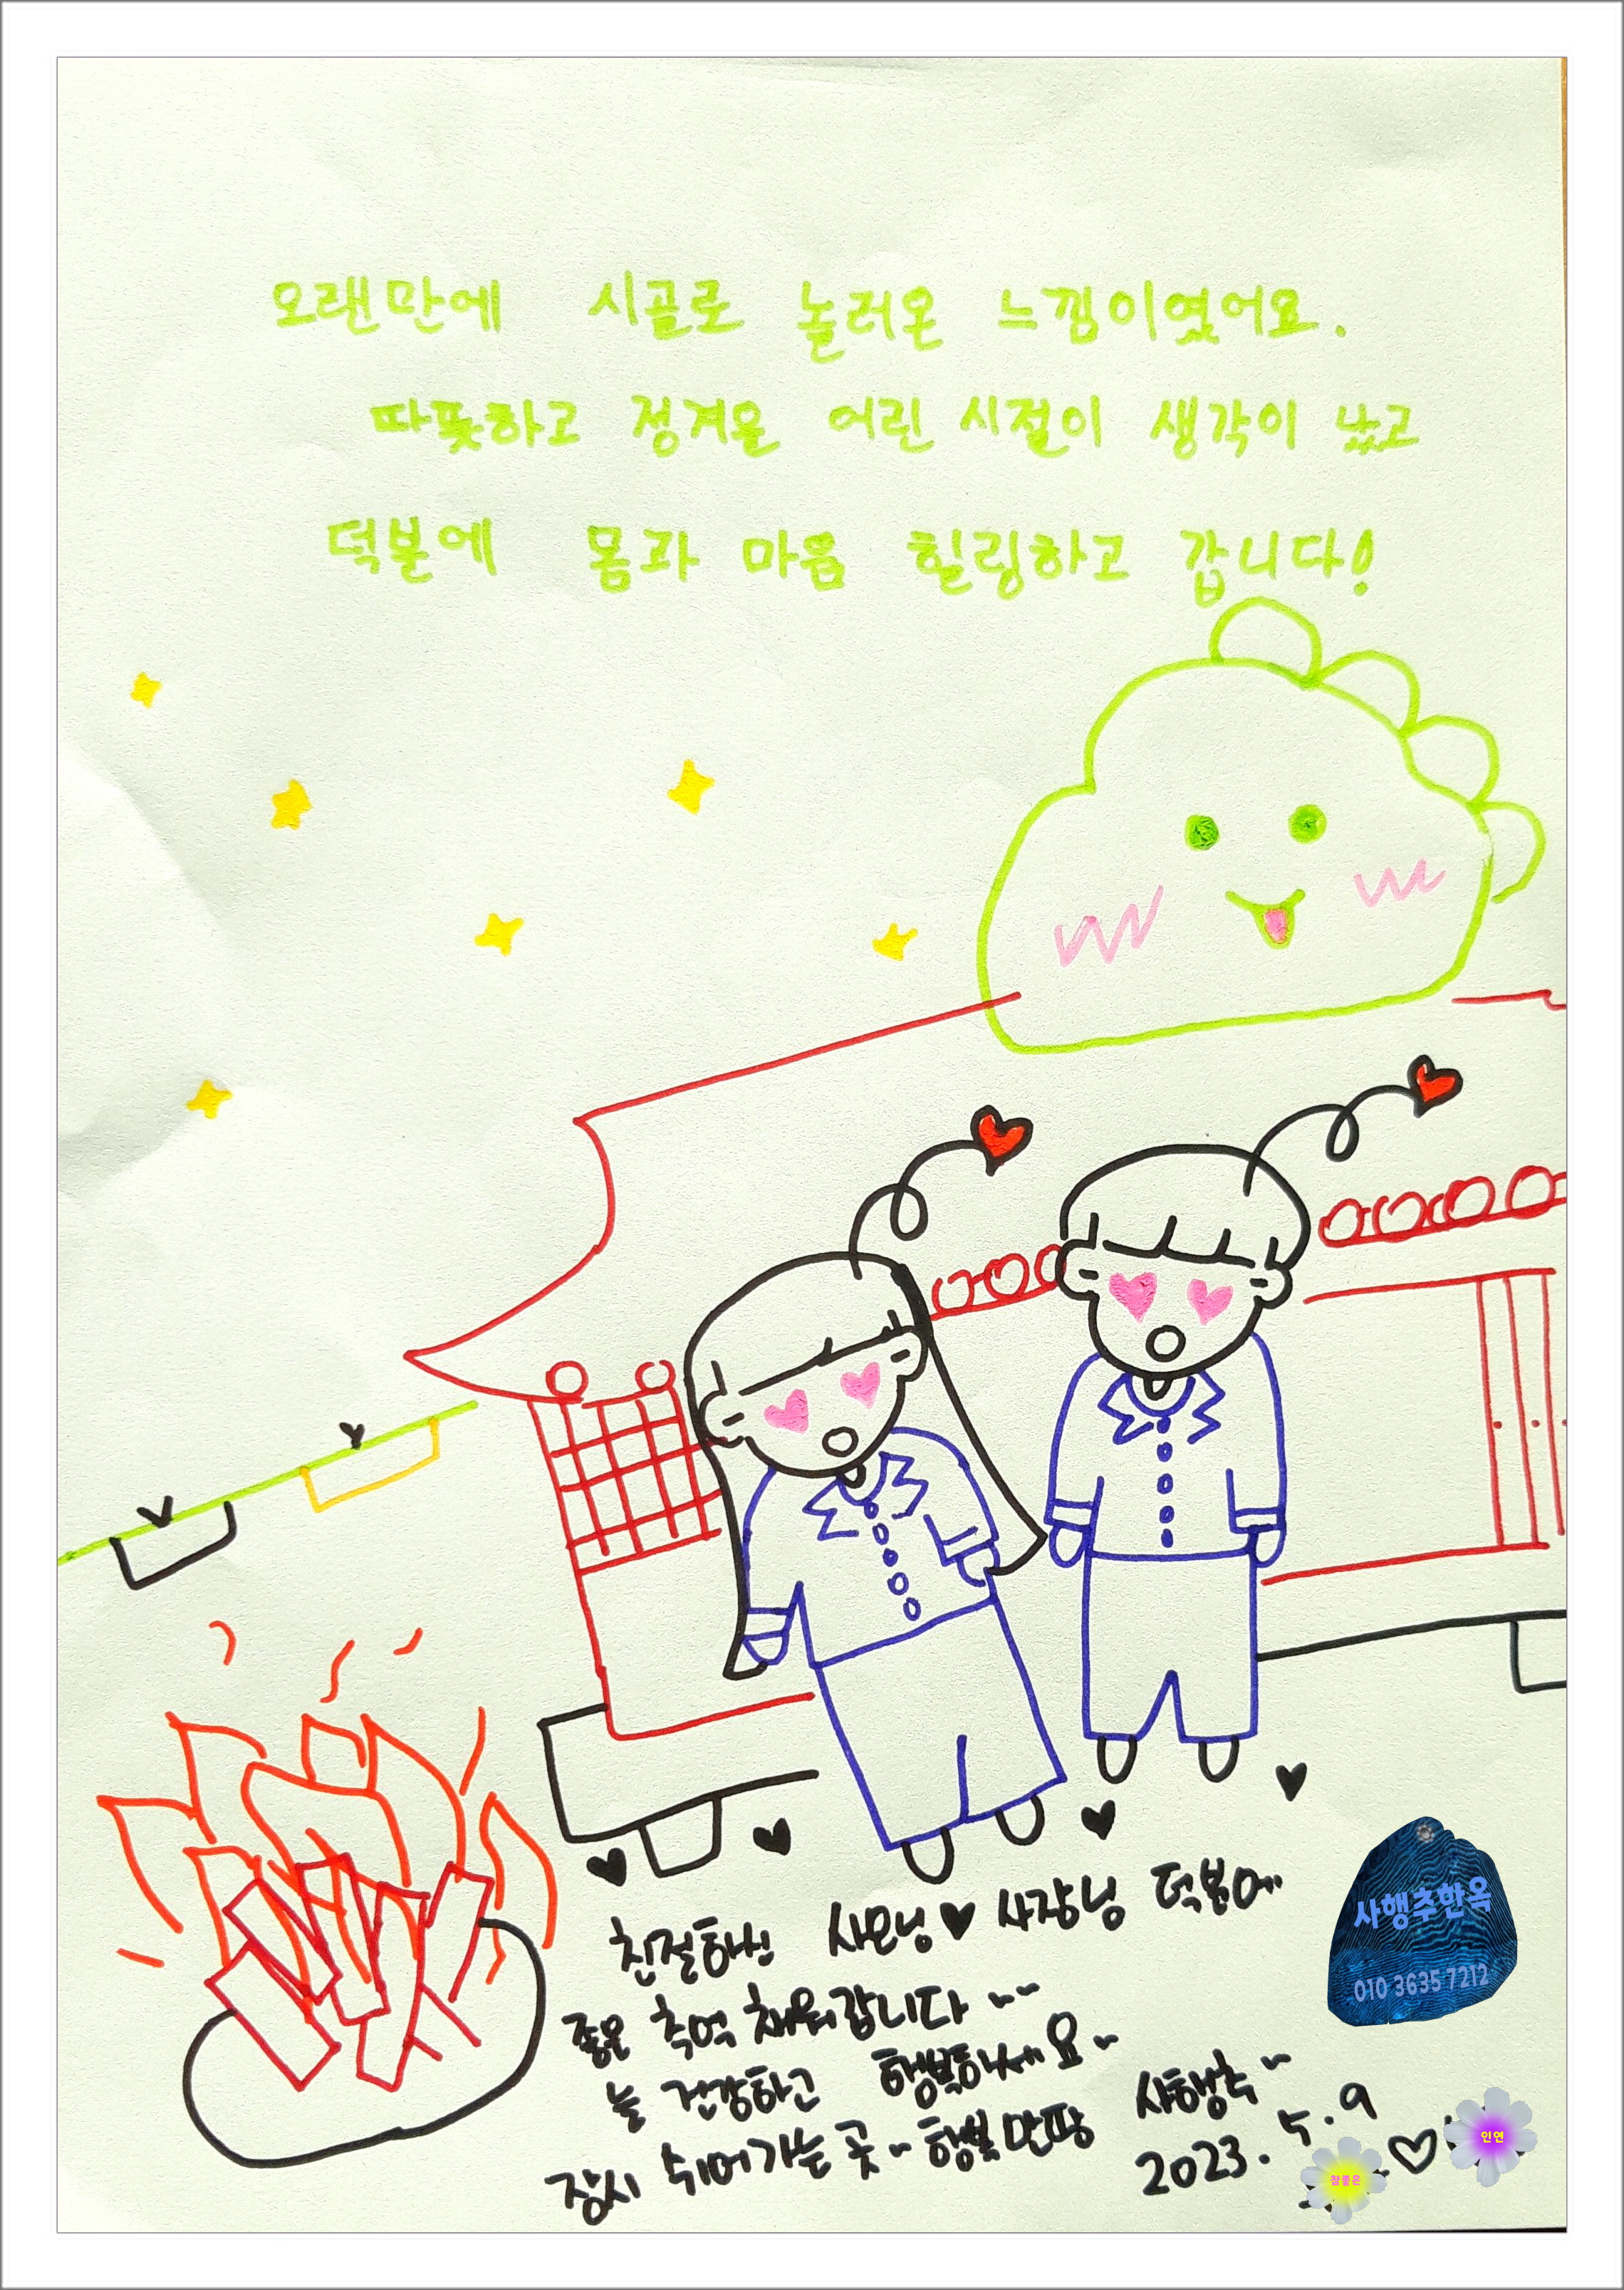 오랜만에 시골로 놀러온 느낌이였어요.
따뜻하고 정겨운 어린 시절이 생각이 났고
덕분에 몸과 마음 힐링하고 갑니다!
친절하신 사모님♥사장님 덕분에
좋은 추억 채워갑니다~~
늘 건강하고 행복하세요~
잠시 쉬어가는 곳~행복만땅 사행추~
2023. 5. 9
사행추한옥
010 3635 7212
인연
참좋은